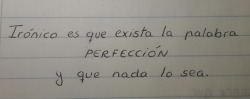 Irónico es que exista la palabra
PERFECCIÓN
y que nada lo sea.